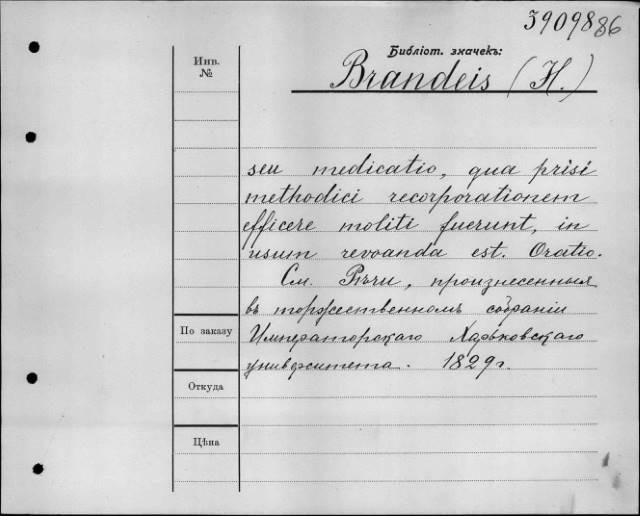 3909886
Библіот. значекъ:
Инв.
№
Brandeis (H.)
seu medicatio, qua prisi
methodici recorporationem
efficere moliti fuerunt, in
usum revoanda est. Oratio.
См. Рѣчи, произнесенныя
въ торжественномъ собраніи
Императорскаго Харьковскаго
университета. 1829 г.
По заказу
Откуда
Цѣна